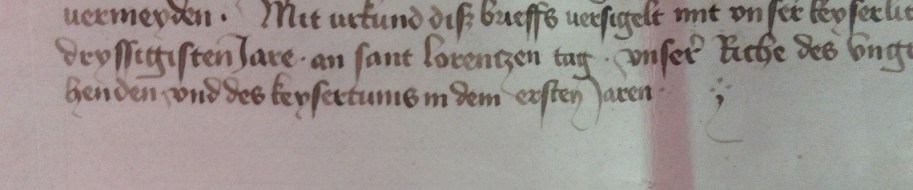 vermeyden · Mit urkund disz brieffs versigelt mit vnser keyserli
dryssigisten Jare · an sant lorentzen tag · vnser Riche des vnge
henden vnd des keysertums in dem ersten Jaren ·